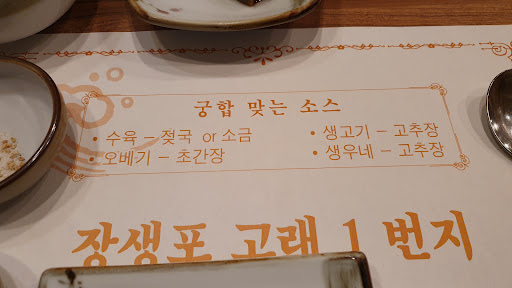 궁합 맞는 소스
• 수육 – 젖국 or 소금
• 생고기 – 고추장
• 오베기 – 초간장
• 생우네 – 고추장
장생포 고래 1 번지